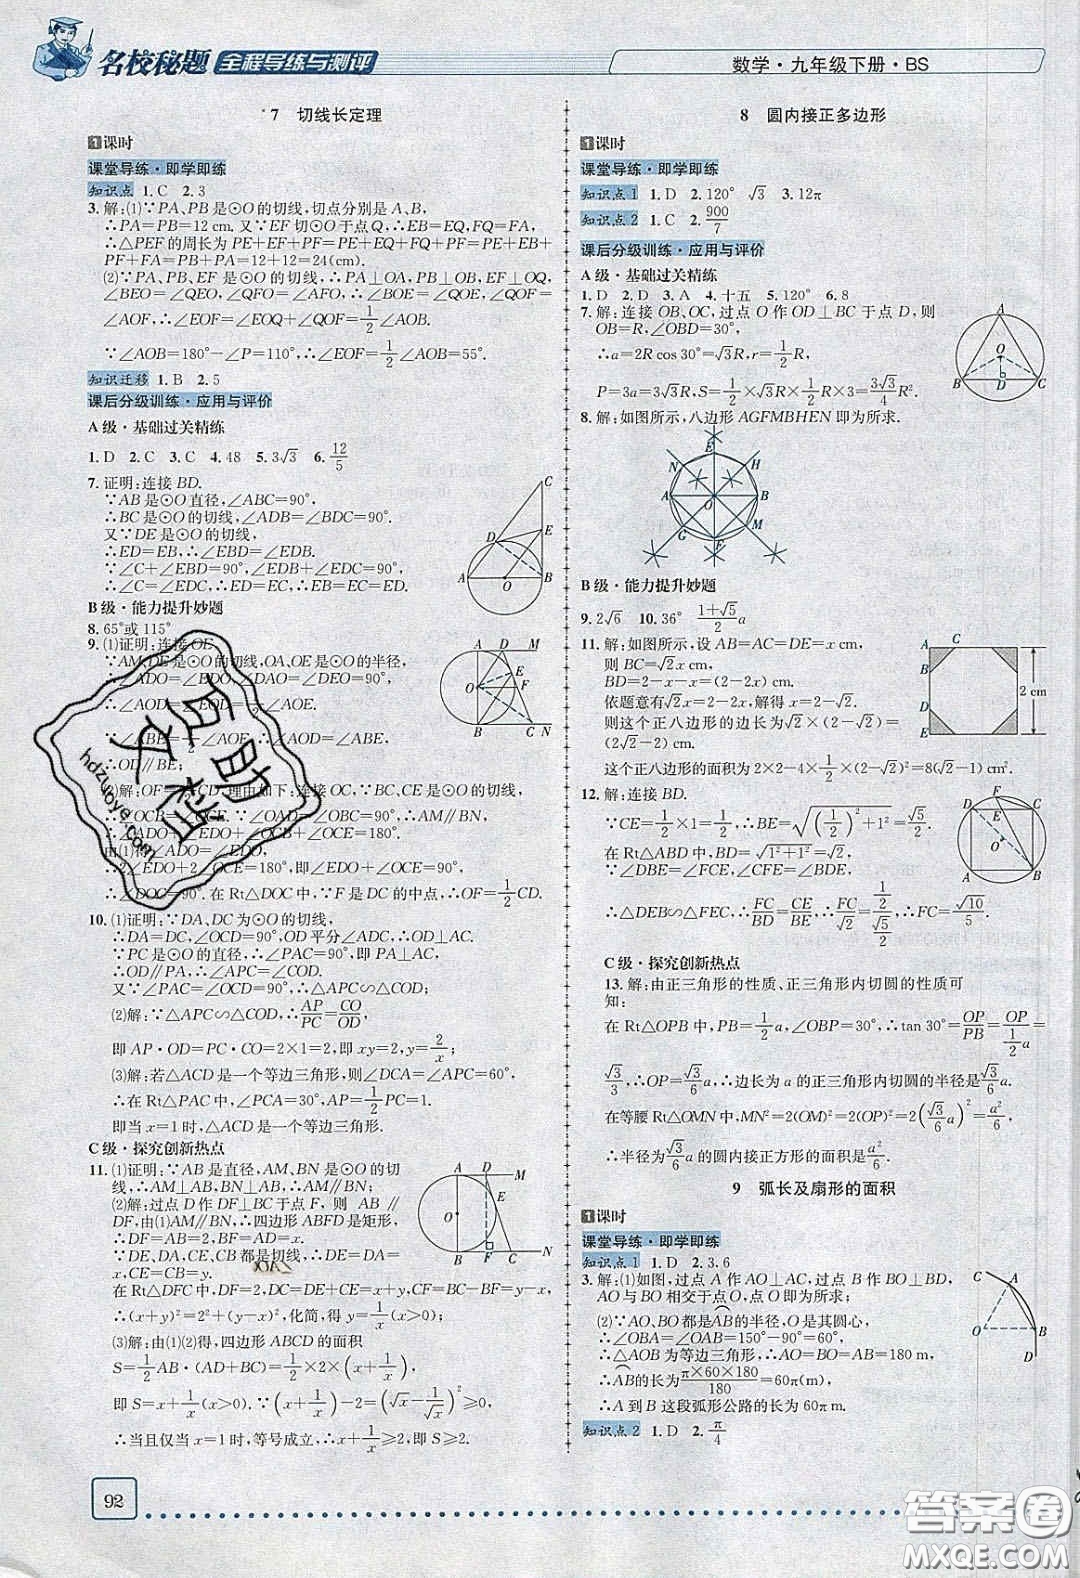 名校秘题 全程导练与测评
数学·九年级下册·BS
7 切线长定理
1课时
课堂导练·即学即练
知识点 1.C 2.3
3.解:(1)∵PA、PB是⊙O的切线,切点分别是A、B,
∴PA=PB=12 cm.又∵EF切⊙O于点Q,∴EB=EQ,FQ=FA,
∴△PEF的周长为PE+EF+PF=PE+EQ+FQ+PF=PE+EB+
PF+FA=PB+PA=12+12=24(cm).
(2)∵PA、PB、EF是⊙O的切线,∴PA⊥OA,PB⊥OB,EF⊥OQ,
∠BEO=∠QEO,∠QFO=∠AFO,∴∠BOE=∠QOE,∠QOF=
∠AOF,∴∠EOF=∠EOQ+∠QOF=1/2∠AOB.
∵∠AOB=180°-∠P=110°,∴∠EOF=1/2∠AOB=55°.
知识迁移 1.B 2.5
课后分级训练·应用与评价
A级·基础过关精练
1.D 2.C 3.C 4.48 5.3√3 6.12/5
7.证明:连接BD.
∵AB是⊙O直径,∠ABC=90°,
∴BC是⊙O的切线,∠ADB=∠BDC=90°.
又∵DE是⊙O的切线,
∴ED=EB,∴∠EBD=∠EDB.
∵∠C+∠EBD=90°,∠CDE+∠EDB=90°,
∴∠C=∠EDC,∴ED=EC,∴EB=EC.
B级·能力提升妙题
8.65°或115°
9.(1)证明:连接OE.
∵AM、DE是⊙O的切线,OA、OE是⊙O的半径,
∴∠ADO=∠EDO,∠DAO=∠DEO=90°,
∴∠AOD=∠EOD=1/2∠AOE.
∵∠ABE=1/2∠AOE,∴∠AOD=∠ABE,
∴OD∥BE;
解:OF=1/2CD.理由如下:连接OC,∵BC、CE是⊙O的切线,
∴∠OCB=∠OCE.∵∠OAD=∠OBC=90°,∴AM∥BN,
∴∠ADO+∠EDO+∠OCB+∠OCE=180°.
由(1)得∠ADO=∠EDO,
∴2∠EDO+2∠OCE=180°,即∠EDO+∠OCE=90°,
∴∠DOC=90°.在Rt△DOC中,∵F是DC的中点,∴OF=1/2CD.
10.(1)证明:∵DA、DC为⊙O的切线,
∴DA=DC,∠OCD=90°,OD平分∠ADC,∴OD⊥AC.
∵PC是⊙O的直径,∴∠PAC=90°,即PA⊥AC,
∴OD∥PA,∴∠ACP=∠COD.
又∵∠PAC=∠OCD=90°,∴△APC∽△COD;
(2)解:∵△APC∽△COD,∴AP/PC=CO/OD,
即AP·OD=PC·CO=2×1=2,即xy=2,y=2/x;
(3)解:若△ACD是一个等边三角形,则∠DCA=∠APC=60°,
∴在Rt△PAC中,∠PCA=30°,AP=1/2PC=1.
即当x=1时,△ACD是一个等边三角形.
C级·探究创新热点
11.(1)证明:∵AB是直径,AM、BN是⊙O的切
线,∴AM⊥AB,BN⊥AB,∴AM∥BN;
(2)解:过点D作DF⊥BC于点F,则AB∥
DF,由(1)AM∥BN,∴四边形ABFD是矩形,
∴DF=AB=2,BF=AD=x.
∵DE、DA、CE、CB都是切线,∴DE=DA=
x,CE=CB=y.
在Rt△DFC中,DF=2,DC=DE+CE=x+y,CF=BC-BF=y-x,
∴(x+y)²=2²+(y-x)²,化简,得y=1/x(x>0);
(3)解:由(1)(2)得,四边形ABCD的面积
S=1/2AB·(AD+BC)=1/2×2×(x+1/x),
即S=x+1/x(x>0).∵(x+1/x)-2=(√x-1/√x)²≥0,
∴当且仅当x=1时,等号成立,∴x+1/x≥2,即S≥2.
92
8 圆内接正多边形
1课时
课堂导练·即学即练
知识点1 1.D 2.120° √3 3.12π
知识点2 1.C 2.900/7
课后分级训练·应用与评价
A级·基础过关精练
1.D 2.D 3.A 4.十五 5.120° 6.8
7.解:连接OB、OC,过点O作OD⊥BC于点D,则
OB=R,∠OBD=30°,
∴a=2R cos 30°=√3R,r=1/2R,
P=3a=3√3R,S=1/2×√3R×1/2R×3=3√3/4R².
8.解:如图所示,八边形AGFMBHEN即为所求.
B级·能力提升妙题
9.2√6 10.36° (1+√5)/2 a
11.解:如图所示,设AB=AC=DE=x cm,
则BC=√2x cm,
BD=2-x-x=(2-2x)cm.
依题意有√2x=2-2x,解得x=2-√2.
则这个正八边形的边长为√2×(2-√2)=
(2√2-2)cm.
这个正八边形的面积为2×2-4×1/2×(2-√2)²=8(√2-1)cm².
12.解:连接BD.
∵CE=1/2×1=1/2,∴BE=√((1/2)²+1²)=√5/2.
在Rt△ABD中,BD=√(1²+1²)=√2.
∵∠DBE=∠FCE,∠CFE=∠BDE,
∴△DEB∽△FEC,∴FC/BD=CE/BE,∴FC/√2=(1/2)/(√5/2),∴FC=√10/5.
C级·探究创新热点
13.解:由正三角形的性质、正三角形内切圆的性质可
知:
在Rt△OPB中,PB=1/2a,∠OBP=30°,∴tan 30°=OP/PB=OP/(1/2a)=
√3/3,∴OP=√3/6a,∴边长为a的正三角形内切圆的半径是√3/6a.
在等腰Rt△OMN中,MN²=2(OM)²=2(OP)²=2(√3/6a)²=a²/6,
∴半径为√3/6a的圆内接正方形的面积是a²/6.
9 弧长及扇形的面积
1课时
课堂导练·即学即练
知识点1 1.D 2.3.6
3.解:(1)如图,过点A作AO⊥AC,过点B作BO⊥BD,
AO与BO相交于点O,点O即为所求;
(2)∵AO、BO都是AB的半径,O是其圆心,
∴∠OBA=∠OAB=150°-90°=60°,
∴△AOB为等边三角形,∴AO=BO=AB=180 m,
∴AB的长为π×60×180/180=60π(m),
∴A到B这段弧形公路的长为60π m.
知识点2 1.D 2.π/4
互助
作业
hdzuoye.com
答案圈
MXQE.COM